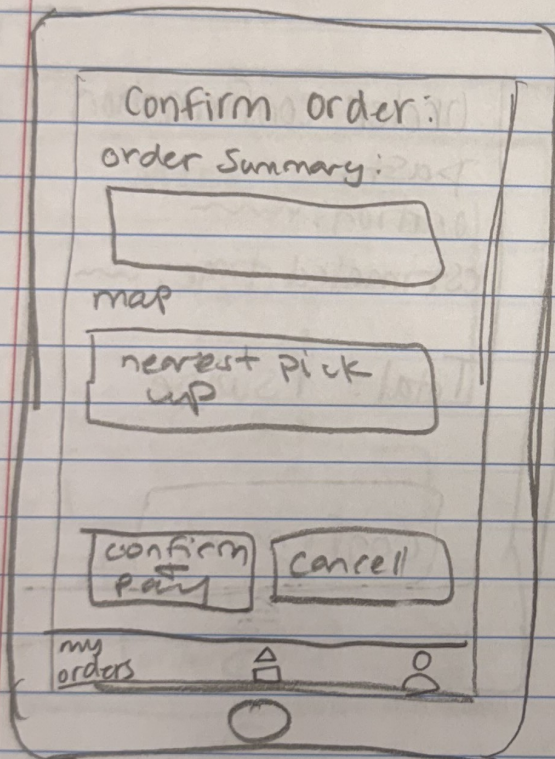 Confirm order:
order summary:
map
nearest pick
up
confirm
+
pay
cancell
my
orders